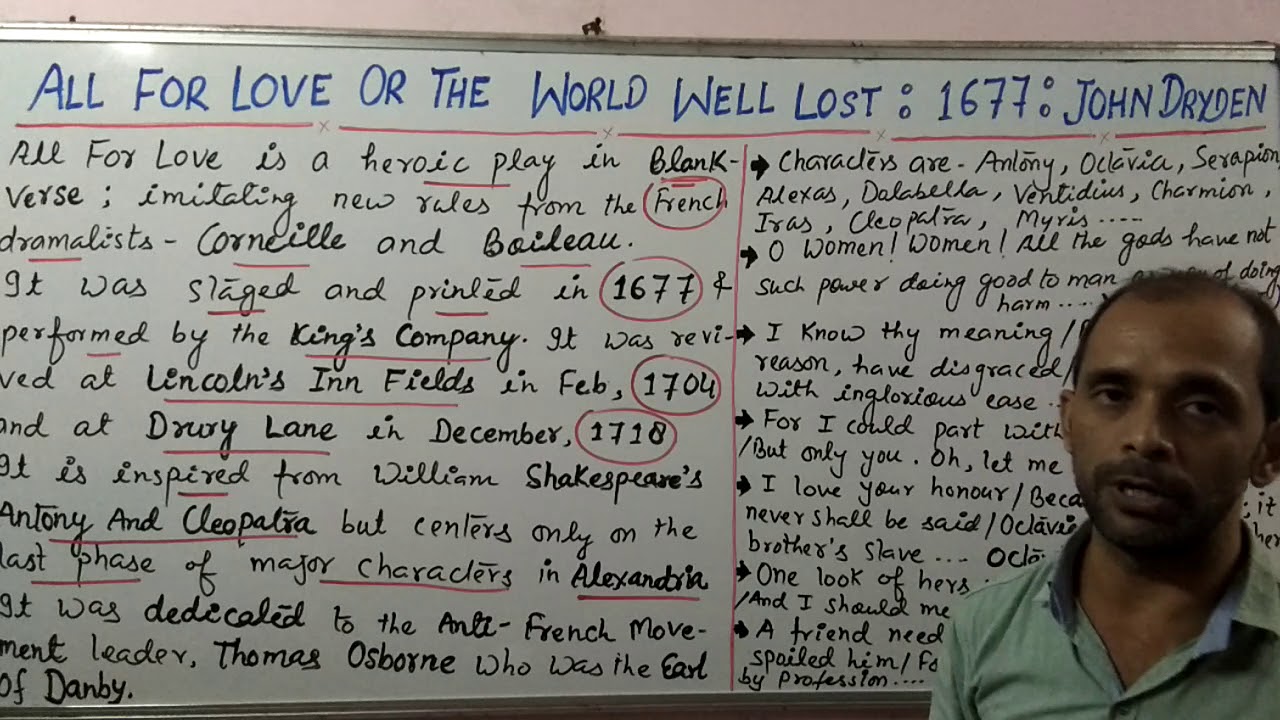 ALL FOR LOVE OR THE WORLD WELL LOST : 1677 : JOHN DRYDEN
All For Love is a heroic play in Blank-
verse ; imitating new rules from the French
dramatists - Corneille and Boileau.
It was staged and printed in 1677 &
performed by the King's Company. It was revi-
ved at Lincoln's Inn Fields in Feb, 1704
and at Drury Lane in December, 1718
It is inspired from William Shakespeare's
Antony And Cleopatra but centers only on the
last phase of major characters in Alexandria
It was dedicated to the Anti-French Move-
ment leader, Thomas Osborne who was the Earl
Of Danby.
→ Characters are - Antony, Octavia, Serapion
Alexas, Dalabella, Ventidius, Charmion,
Iras, Cleopatra, Myris .....
→ O Women! Women! All the gods have not
such power doing good to man of doing
harm ....
→ I Know thy meaning /
reason, have disgraced /
With inglorious ease ..
→ For I could part with
/But only you. Oh, let me
→ I love your honour / Beca : it
never shall be said / Octavi her
brother's slave ... Octa
→ One look of hers
/And I should me
→ A friend need
spoiled him / Fo
by profession ....